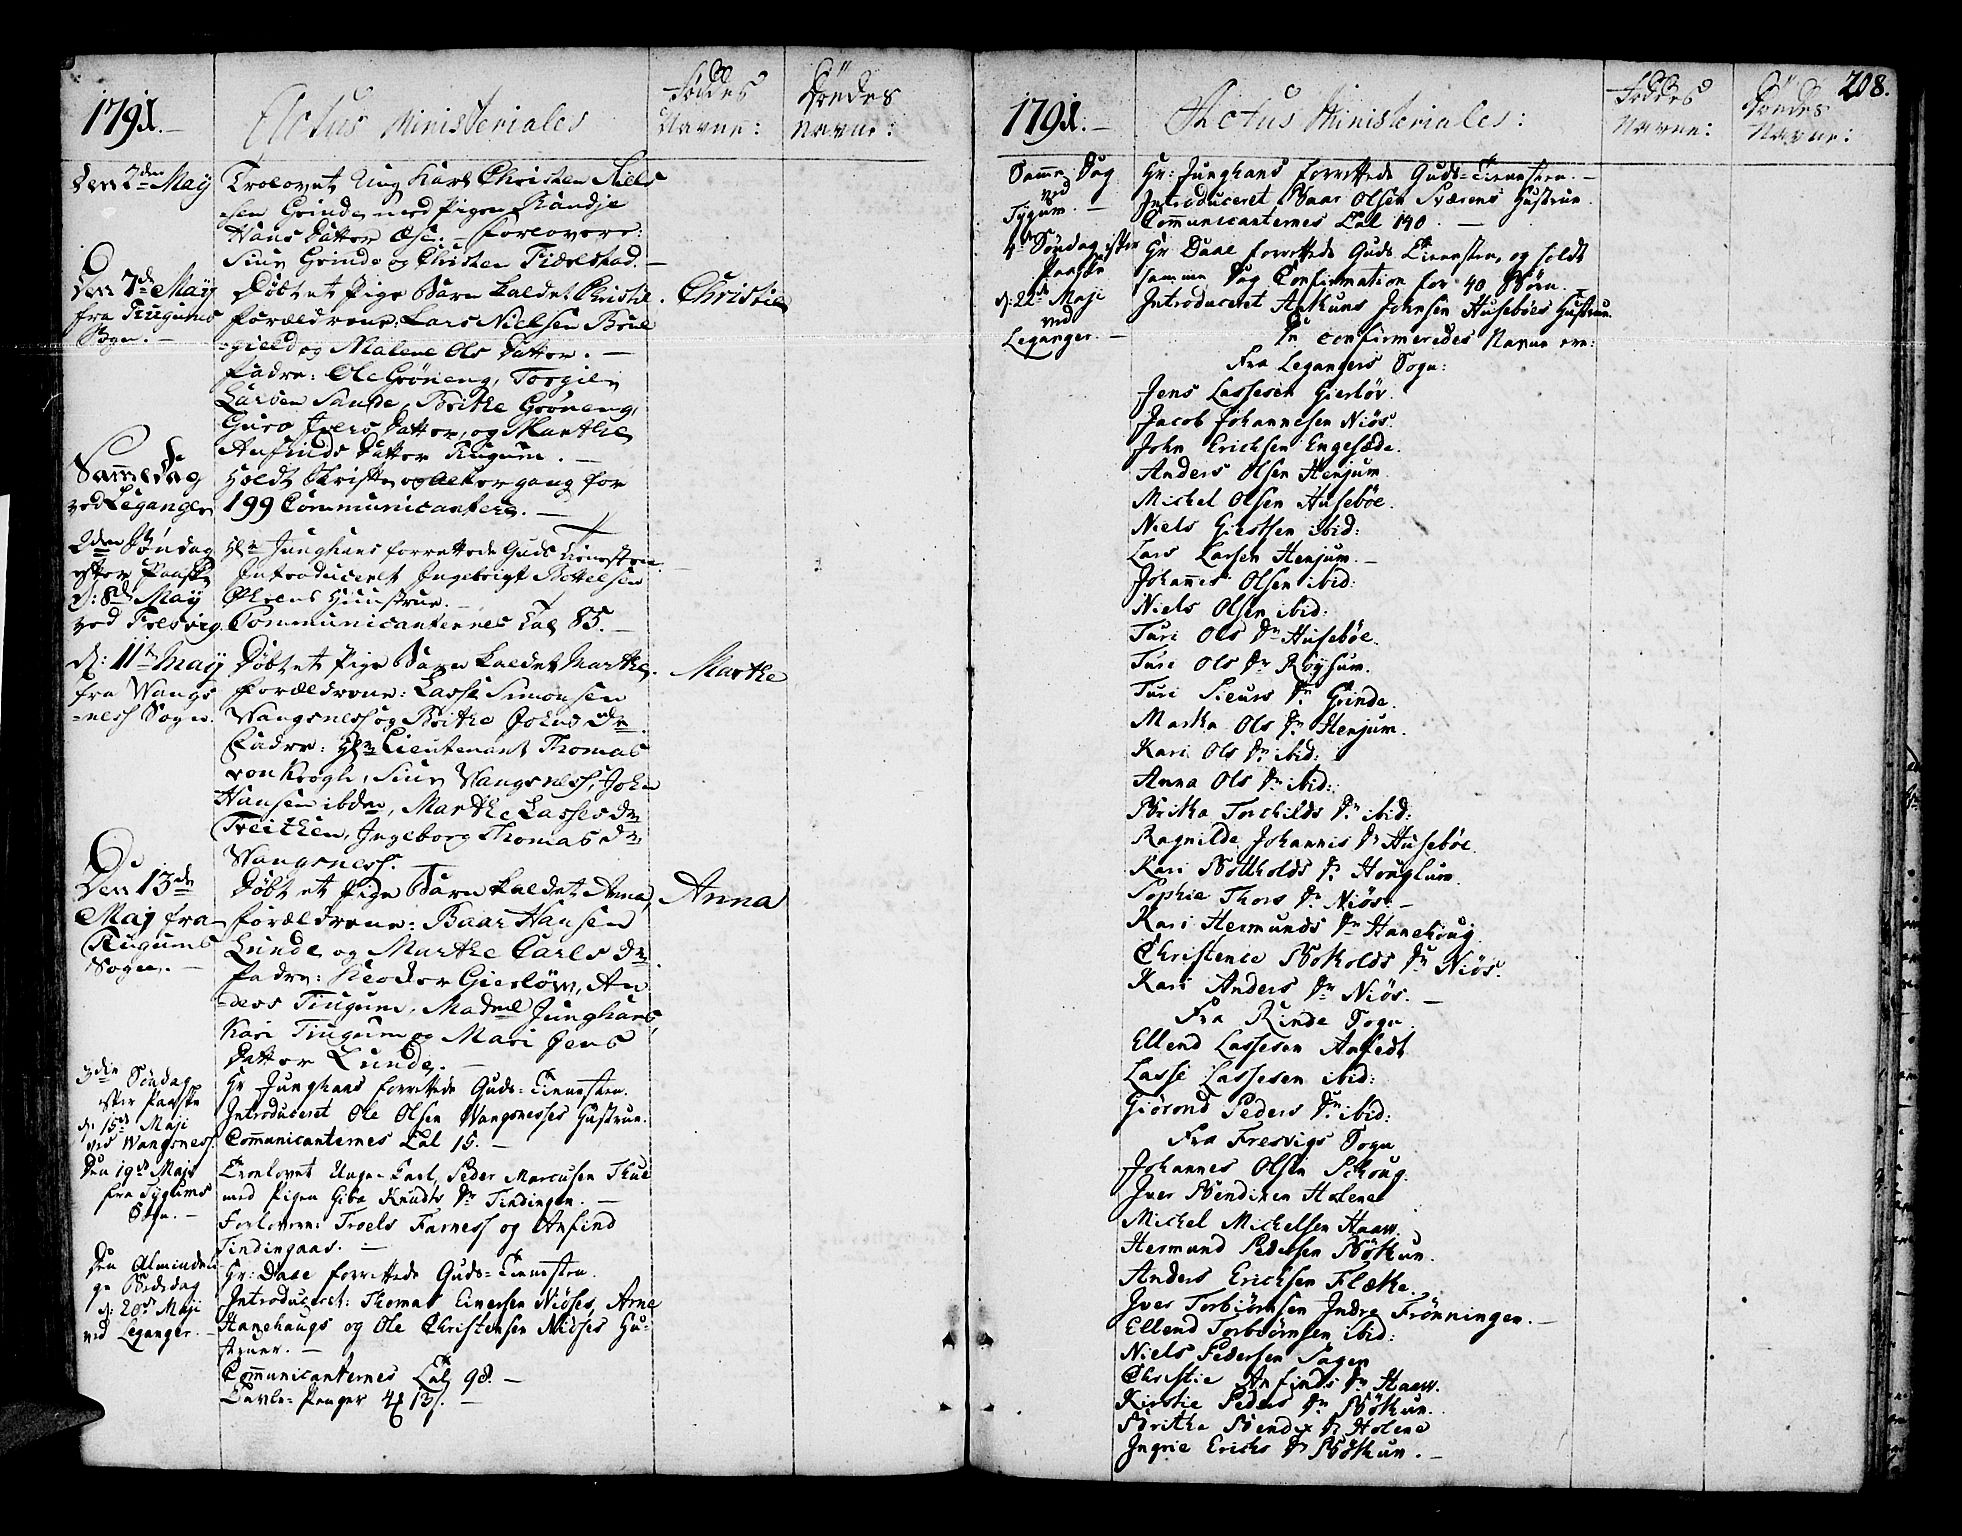 1791.
Actus Ministeriales
Føddes Navne:
Døedes Navne:
den 2den May
Troelovet Ung Karl Christen Niels
sen Grinde med Pigen Randje
Hans Datter Ese. Forlovere:
Siur Grinde og Christen Fieldstad.
Den 7de May
fra Tiugums
Sogn.
Døbt et Pige Barn kaldet Christie.
Christie
Forældrene: Lars Nielsen
gield og Malene Ols Datter.
Fadre: Ole Grøneng, Torgiel
Larsen Sande, Brithe Grøneng,
Guro Ivers Datter, og Marthe
Anfinds Datter Tiugum.
Samme Dag
ved Leganger
Holdt Skrifte og Altergang for
199 Communicanter.
2den Søndag
efter Paaske
d: 8de May
ved Fresvig.
Hr Junghans forrettede Guds Tienesten.
Introduceret Ingebrigt Bottelsen
Hustrue.
Communicanternes Tal 85.
d: 11te May
fra Wangs
=ness Sogn.
Døbt et Pige Barn kaldet Marthe.
Marthe
Forældrene: Lasse Simonsen
Wangsness og Brithe Johns Dr.
Fadre: Hr Lieutenant Thomas
von Krogh, Siur Wangsness, John
Hansen ibdm, Marthe Lasses Dr
Freithen, Ingeborg Thomas Dr
Wangsness.
Den 13de
Maj fra
Tiugums
Sogn.
Døbt et Pige Barn kaldet Anna,
Anna
Forældrene: Baar Hansen
Lunde og Marthe Carls Dr.
Fadre: Theodor Gierløw, An
=ders Tiugum, Madme Junghans,
Kari Tiugum og Mari Jens
Datter Lunde.
3die Søndag
efter Paaske
d: 15de Maji
ved Wangsness.
Hr Junghans forrettede Guds=Tienesten.
Introduceret Ole Olsen Wangsnesses Hustrue.
Communicanternes Tal 15.
Den 19de Maji
fra Tygums
Sogn.
Troelovet Unge Karl, Peder Marcusen Thue
med Pigen Giba Knudts Dr Tindingen.
Forlovere: Troels Farness og Anfind
Tindingaas.
Den Alminde
ge Bededag
d: 20de Maji
ved Leganger.
Hr: Daae forrettede Guds=Tienesten.
Introduceret: Thomas Einersen Niøses, Arne
Hanehaugs og Ole Christensen Niøses Hu=
struer.
Communicanternes Tal 98.
Tavle=Penger 4 13
208.
1791.
Actus Ministeriales:
Føddes Navne:
Døedes Navne:
Samme Dag
ved
Tygum.
Hr: Junghans forrettede Guds=Tienesten.
Introduceret Baar Olsen Sværens Hustrue.
Communicanternes Tal 140.
4de Søndag efter
Paaske
d: 22de Maji
ved
Leganger.
Hr Daae forrettede Guds Tienesten, og holdt
samme Dag Confirmation for 40 Børn.
Introduceret Johnsen Husebøes Hustrue.
De confirmeredes Navne ere:
Fra Legangers Sogn:
Jens Lassesen Gierløv.
Jacob Johannesen Niøs.
John Erichsen Engesæde.
Anders Olsen Henjum.
Michel Olsen Husebøe.
Niels Giertsen ibid:
Lars Larsen Henjum.
Johannes Olsen ibid:
Niels Olsen ibid:
Turi Ols Dr Husebøe.
Turi Ols Dr Røysum.
Turi Sieurs Dr Grinde.
Martha Ols Dr Henjum.
Kari Ols Dr ibid:
Anna Ols Dr ibid:
Britha Torchilds Dr ibid:
Ragnilde Johannis Dr Husebøe.
Kari Bottholds Dr Houglum.
Sophie Thors Dr Niøs.
Kari Hermunds Dr Hanehoug.
Christence Botholds Dr Niøs.
Kari Anders Dr Niøs.
Fra Rinde Sogn.
Ellend Lassesen Anfedt
Lasse Lassesen ibid:
Giørond Peders Dr ibid:
Fra Fresvigs Sogn
Johannes Olsen Schoug.
Iver Bendixen Holene
Michel Michelsen Haaw.
Hermund Pedersen Bøthun.
Anders Erichsen Flæthe.
Iver Torbiørnsen Indre Frønningen.
Ellend Torbiørnsen ibid:
Niels Pedersen Sagen
Christie Anfinds Dr Haaw.
Kirstie Peders Dr Bøthun.
Britha Bendix Dr Holene
Ingrie Erichs Dr Bøthun.